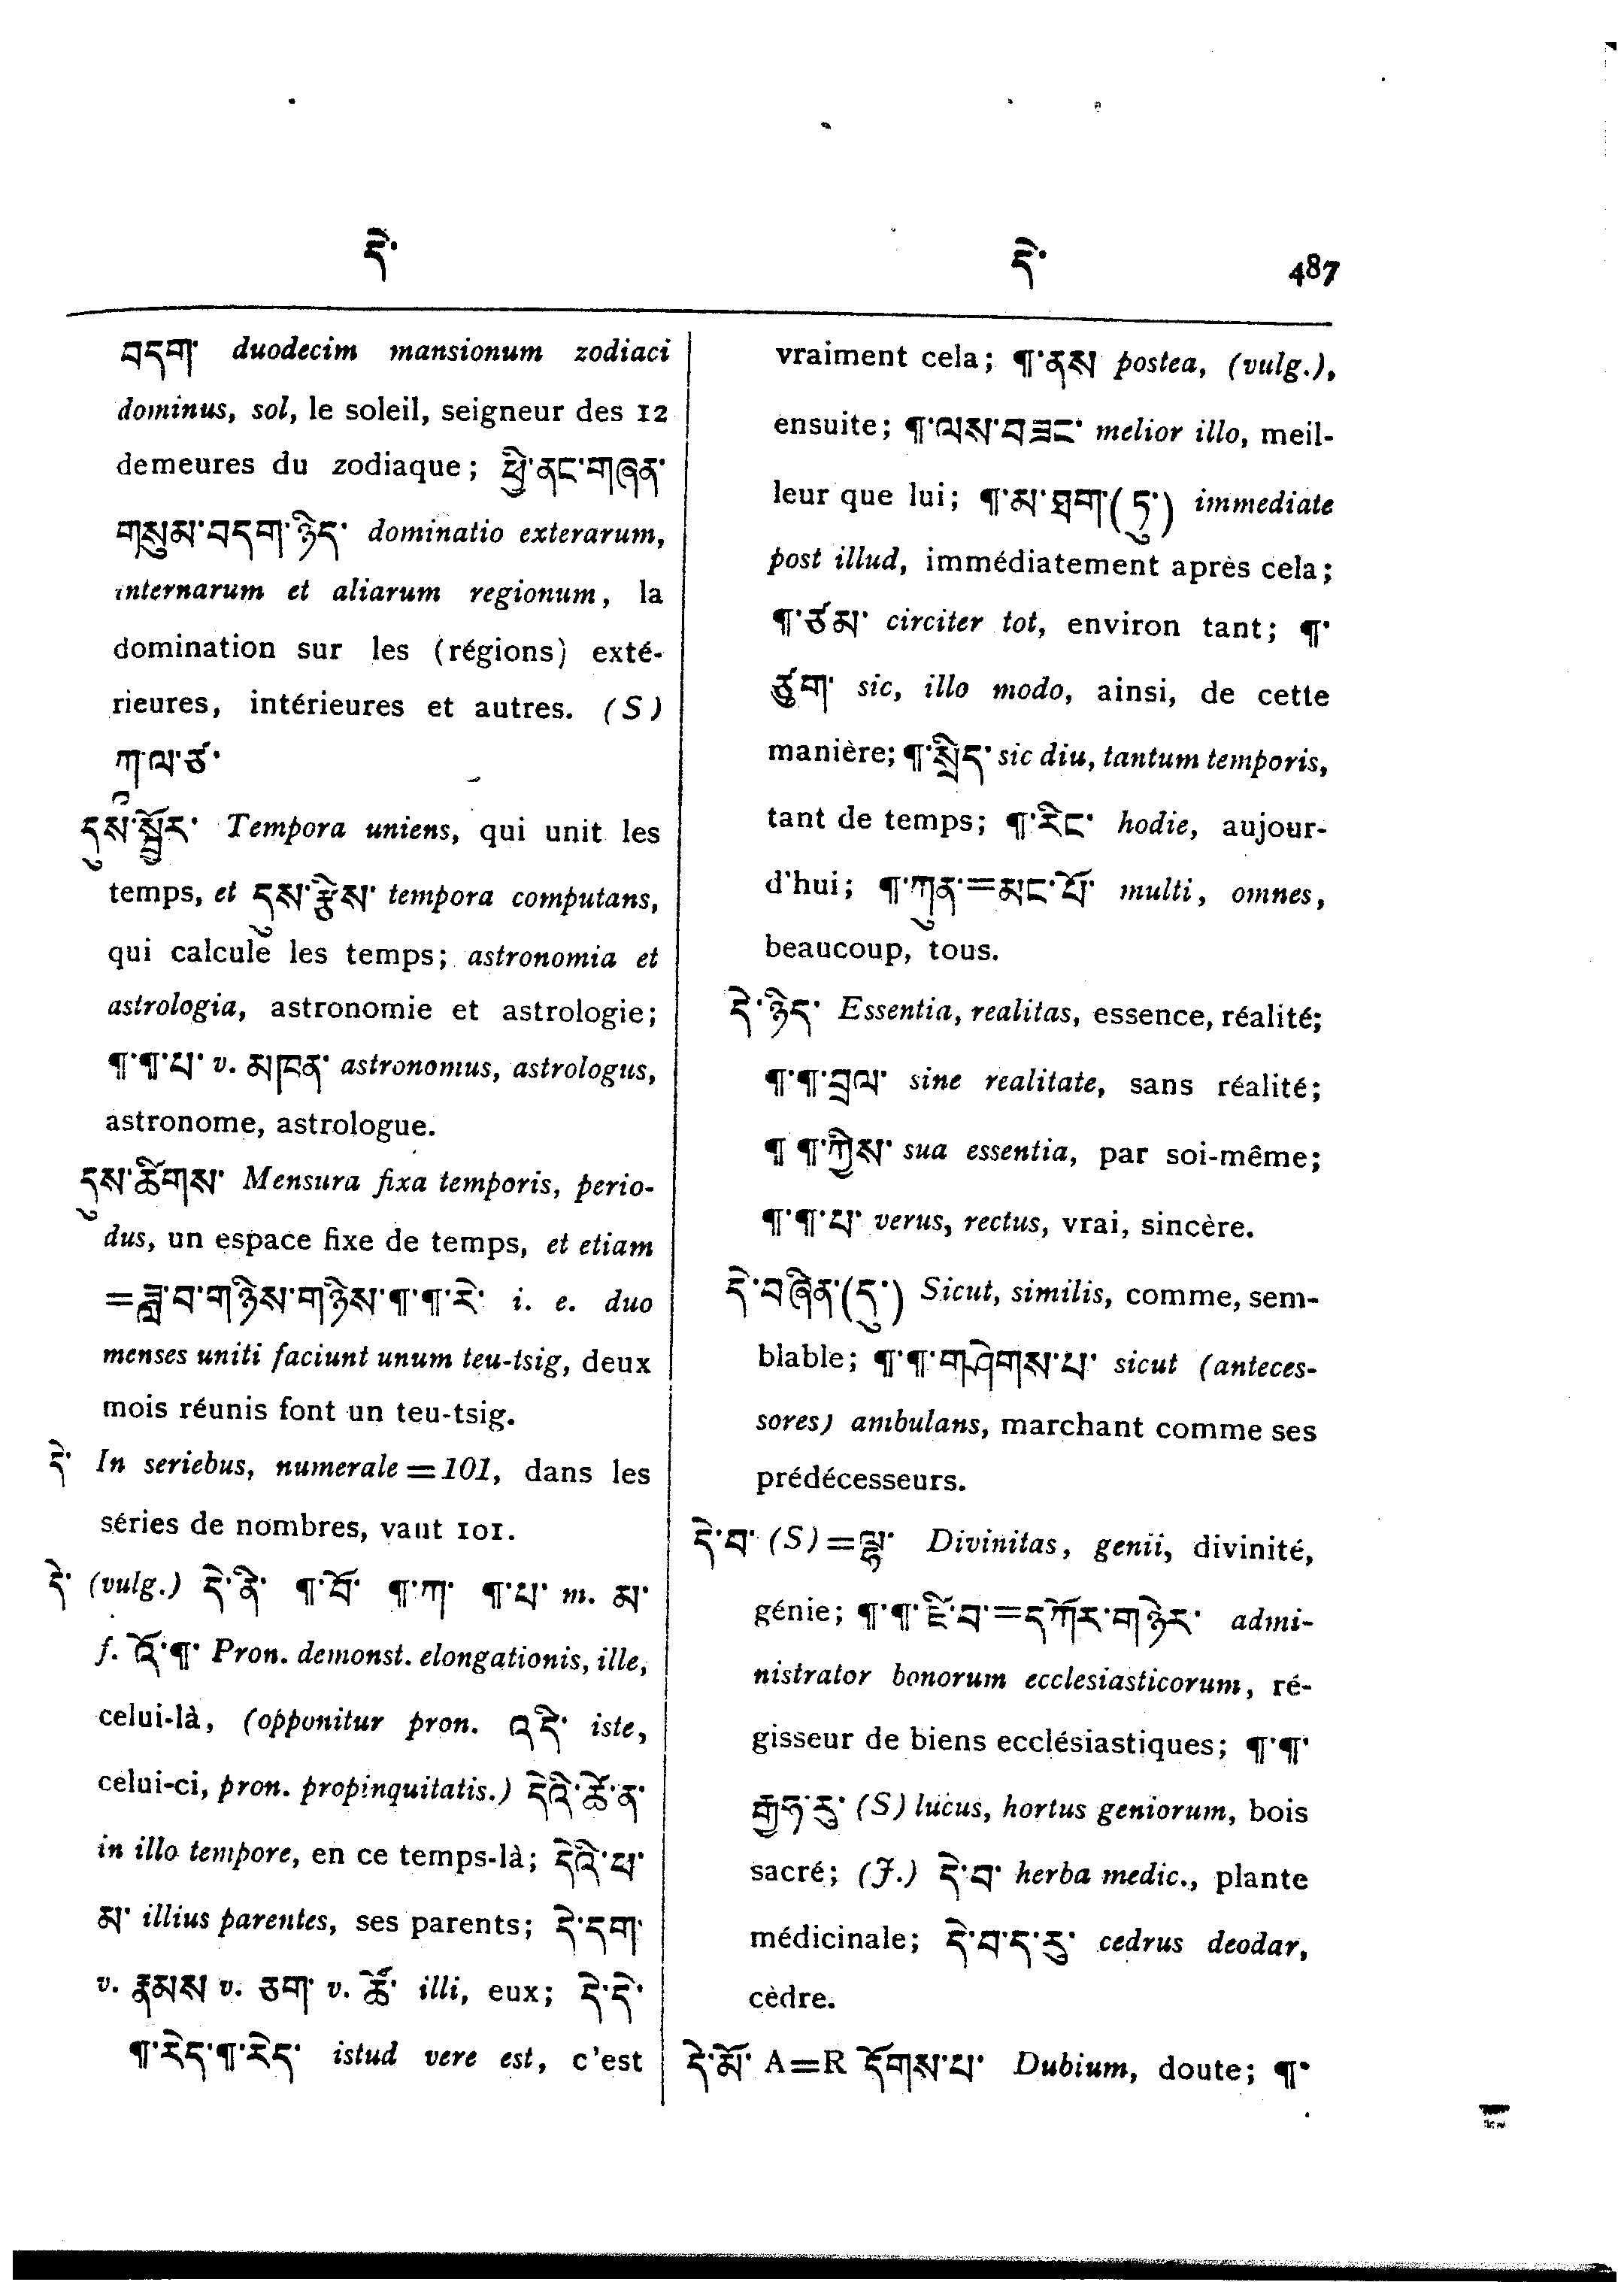 དེ་ དེ་ 487
བདག་ duodecim mansionum zodiaci
dominus, sol, le soleil, seigneur des 12
demeures du zodiaque; ཕྱི་ནང་གཞན་
གསུམ་བདག་ཉིད་ dominatio exterarum,
internarum et aliarum regionum, la
domination sur les (régions) exté-
rieures, intérieures et autres. (S)
ཀ་ལ་ཙ་
དུས་སྦྱོར་ Tempora uniens, qui unit les
temps, et དུས་རྩིས་ tempora computans,
qui calcule les temps; astronomia et
astrologia, astronomie et astrologie;
¶་¶་པ་ v. མཁན་ astronomus, astrologus,
astronome, astrologue.
དུས་ཚིགས་ Mensura fixa temporis, perio-
dus, un espace fixe de temps, et etiam
=ཟླ་བ་གཉིས་གཉིས་¶་¶་རེ་ i. e. duo
menses uniti faciunt unum teu-tsig, deux
mois réunis font un teu-tsig.
དེ་ In seriebus, numerale=101, dans les
séries de nombres, vaut 101.
དེ་ (vulg.) དེ་ནི་ ¶་བོ་ ¶་ཀ་ ¶་པ་ m. མ་
f. འོ་¶་ Pron. demonst. elongationis, ille,
celui-là, (opponitur pron. འདི་ iste,
celui-ci, pron. propinquitatis.) དེའི་ཚོ་ན་
in illo tempore, en ce temps-là; དེའི་ཕ་
མ་ illius parentes, ses parents; དེ་དག་
v. རྣམས v. ཅག་ v. ཚོ་ illi, eux; དེ་དེ་
¶་རེད་¶་རེད་ istud vere est, c'est
vraiment cela; ¶་ནས postea, (vulg.),
ensuite; ¶་ལས་བཟང་ melior illo, meil-
leur que lui; ¶་མ་ཐག་(ཏུ་) immediate
post illud, immédiatement après cela;
¶་ཙམ་ circiter tot, environ tant; ¶་
ཙུག་ sic, illo modo, ainsi, de cette
manière; ¶་སྲིད་ sic diu, tantum temporis,
tant de temps; ¶་རིང་ hodie, aujour-
d'hui; ¶་ཀུན་=མང་པོ་ multi, omnes,
beaucoup, tous.
དེ་ཉིད་ Essentia, realitas, essence, réalité;
¶་¶་བྲལ་ sine realitate, sans réalité;
¶ ¶་ཀྱིས་ sua essentia, par soi-même;
¶་¶་པ་ verus, rectus, vrai, sincère.
དེ་བཞིན་(དུ་) Sicut, similis, comme, sem-
blable; ¶་¶་གཤེགས་པ་ sicut (anteces-
sores) ambulans, marchant comme ses
prédécesseurs.
དེ་བ་ (S)=ལྷ་ Divinitas, genii, divinité,
génie; ¶་¶་ཛི་བ་=དཀོར་གཉེར་ admi-
nistrator bonorum ecclesiasticorum, ré-
gisseur de biens ecclésiastiques; ¶་¶་
(S) lucus, hortus geniorum, bois
sacré; (J.) དེ་བ་ herba medic., plante
médicinale; དེ་བ་ད་རུ་ cedrus deodar,
cèdre.
དེ་མོ་ A=R དོགས་པ་ Dubium, doute; ¶་